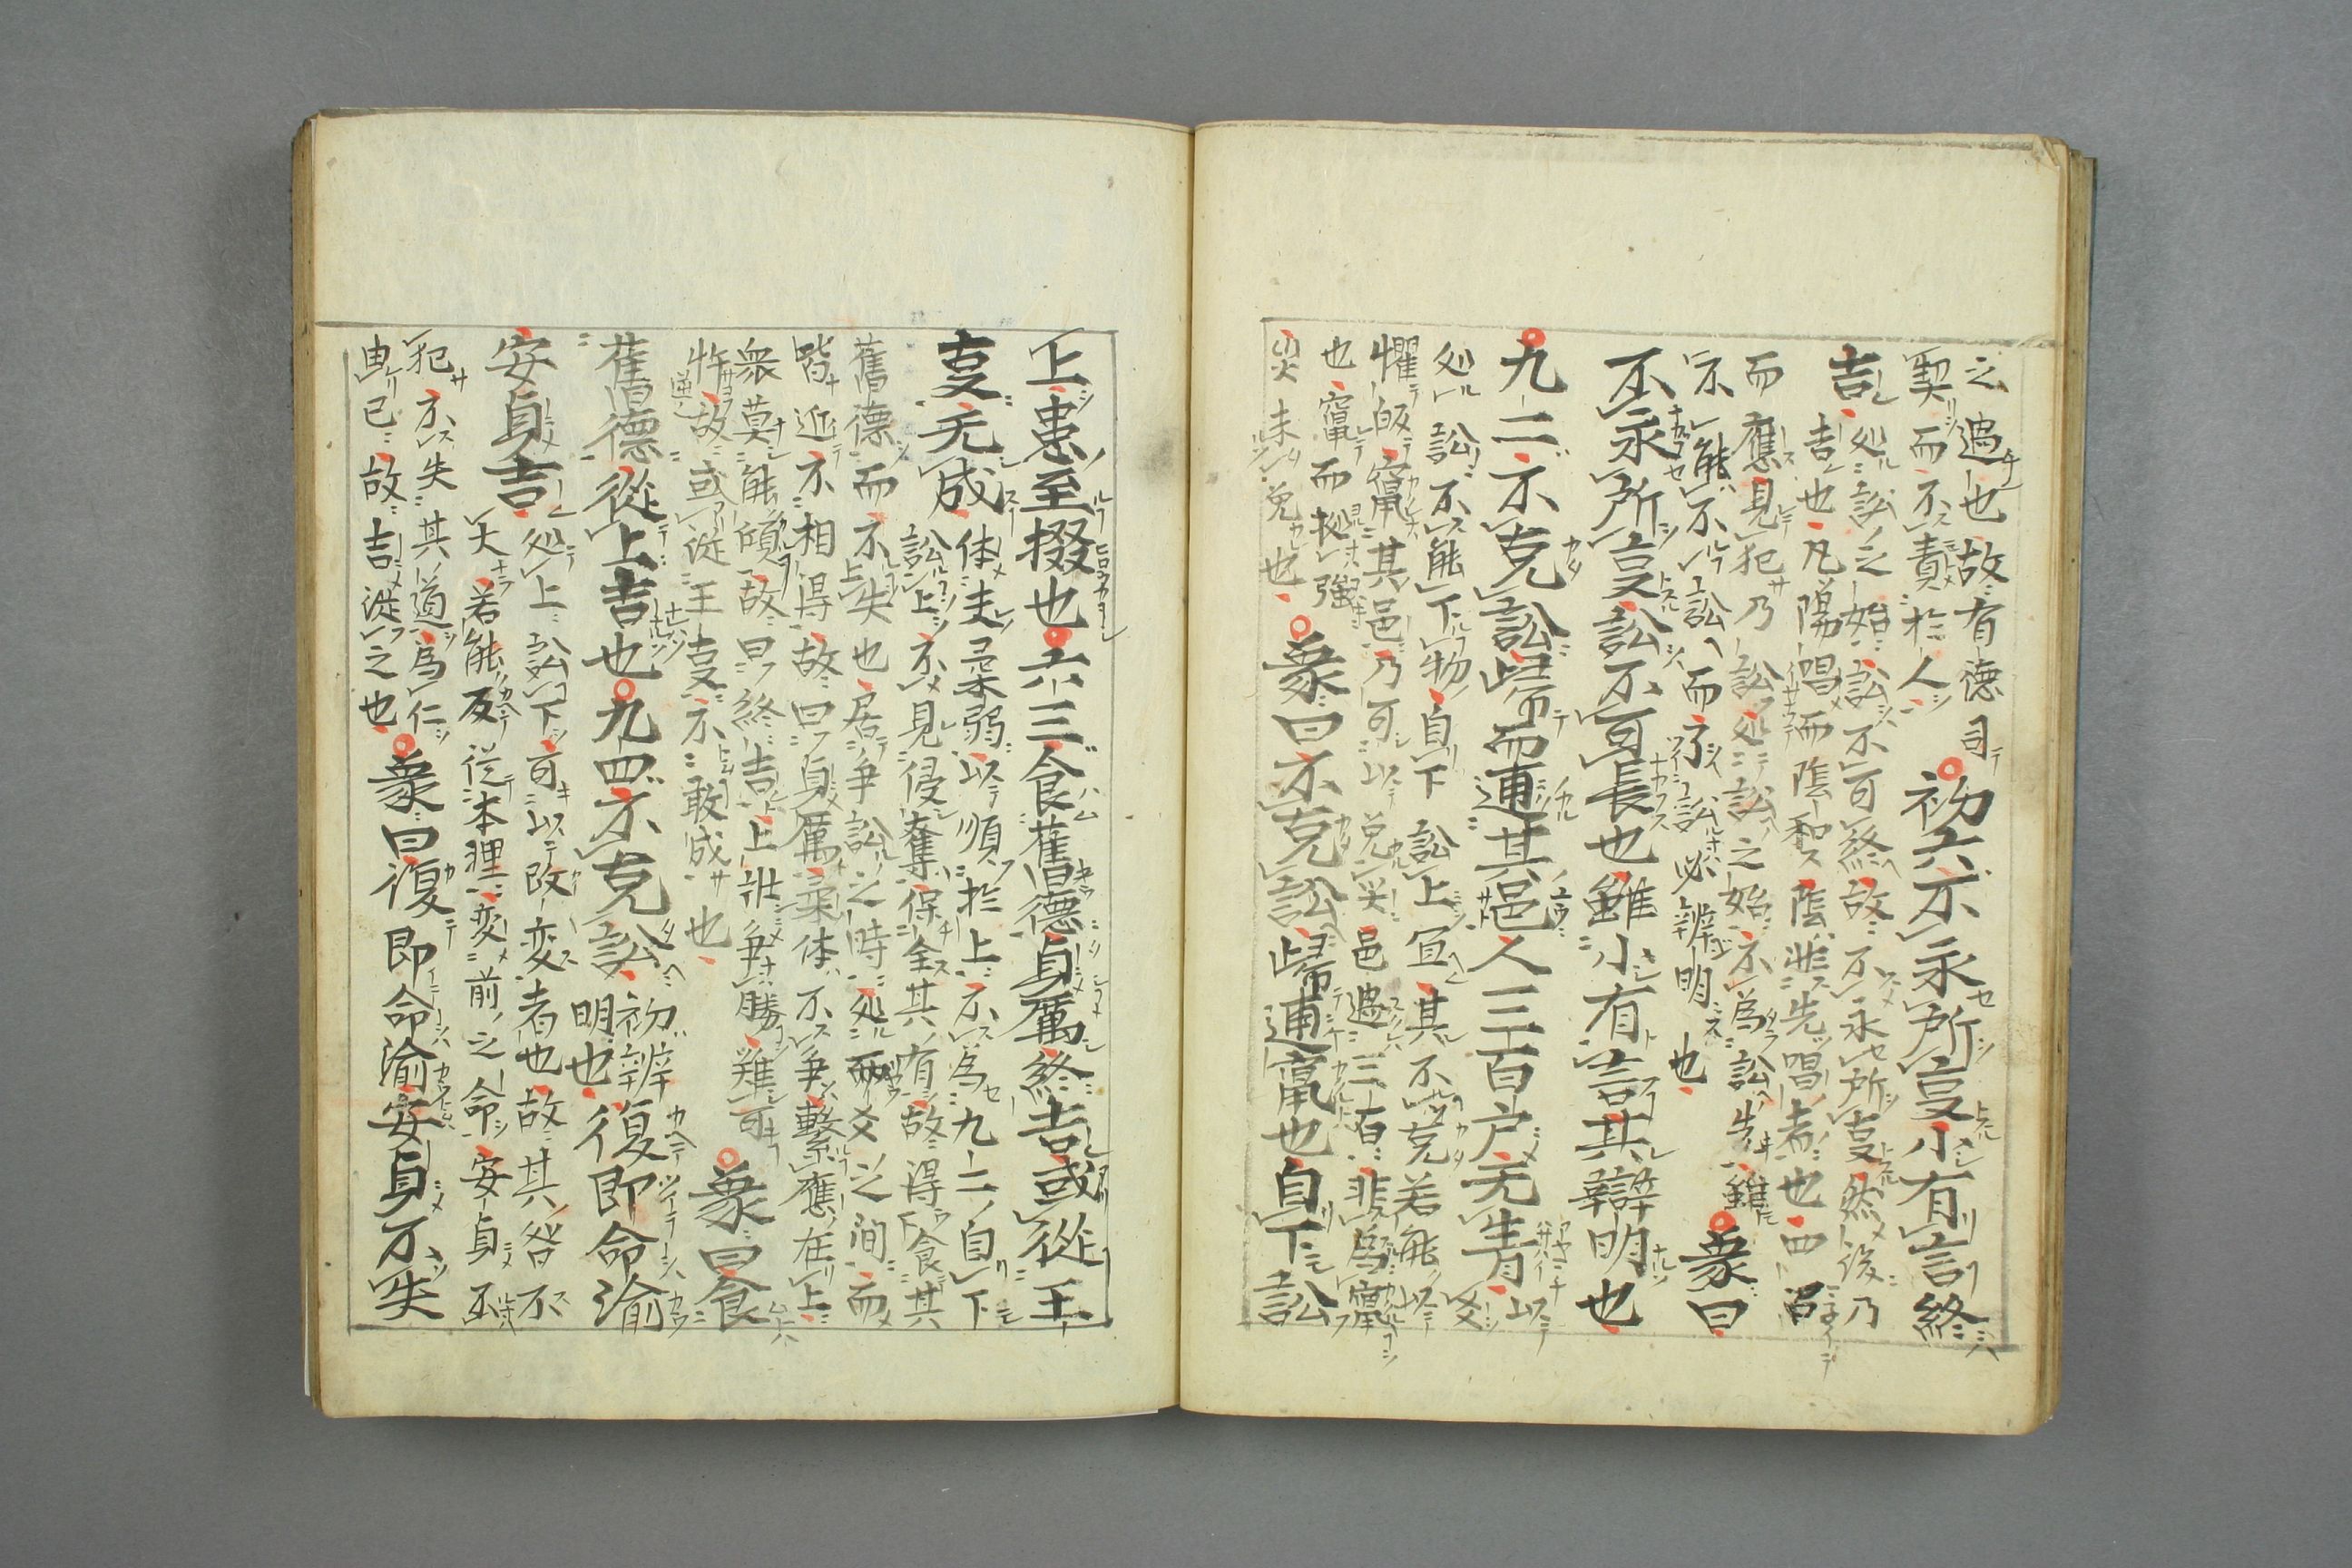 之過也故有德司
契而不責於人
初六不永所㕝小有言終
吉
処訟之始訟不可終故不永所㕝然後乃
吉也凡陽唱而陰和陰非先唱者也四召
而應見犯乃訟処訟之始不為訟先雖
不能不訟而予訟必辨明也
象曰
不永所㕝訟不可長也雖小有言其辯明也
九二不克訟歸而逋其邑人三百户无眚
以
爻
処訟不能下物自下訟上宜其不克若能以
懼皈竄其邑乃可以免災邑過三百非為竄
也竄而拠強
災未免也
象曰不克訟歸逋竄也自下訟
上患至掇也六三食舊德貞厲終吉或從王
㕝无成
体夫柔弱以順於上不為九二自下
訟上不見侵奪保全其有故得食其
舊德而不失也居爭訟之時処兩爻之間而
皆近不相得故曰貞厲柔体不爭繫應在上
衆莫能傾故曰終吉上壯爭勝難可
忤故或從王㕝不敢成也
象曰食
舊德從上吉也九四不克訟
初辨
明也
復即命渝
安貞吉
処上訟下可以改変者也故其咎不
大若能反從本理変前之命安貞不
犯不失其道為仁
由己故吉從之也
象曰復即命渝安貞不失